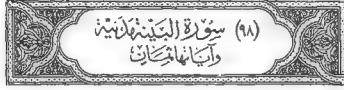 (٩٨) سُورَةُ الْبَيِّنَةِ مَدَنِيَّةٌ
وَآيَاتُهَا ثَمَانٍ